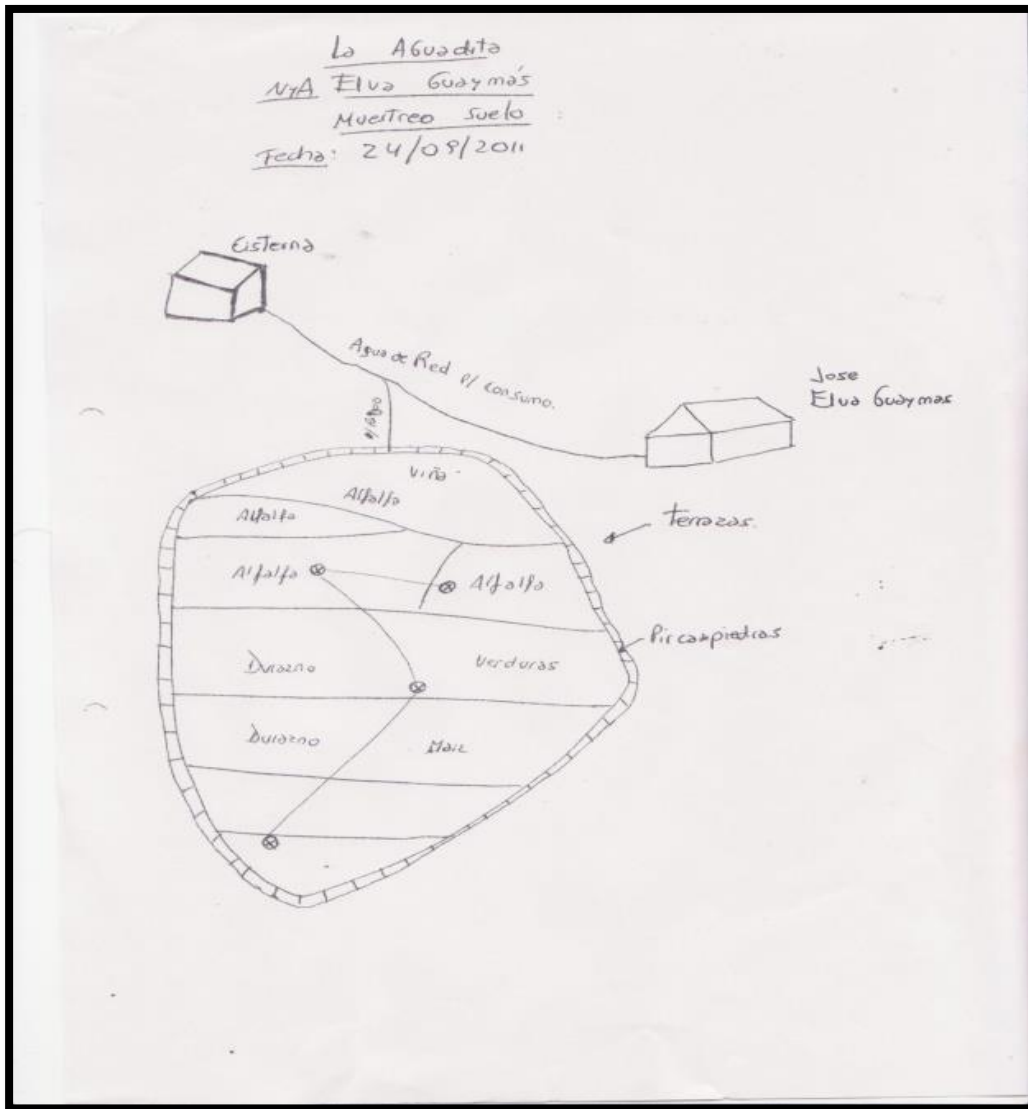 La Aguadita
NyA Elva Guaymás
Muestreo Suelo
Fecha: 24/09/2011
Cisterna
Agua de Red p/ consumo.
Jose
Elva Guaymas
p/ riego
Viña
Alfalfa
Alfalfa
terrazas.
Alfalfa
Alfalfa
Pircas piedras
Durazno
Verduras
Durazno
Maiz